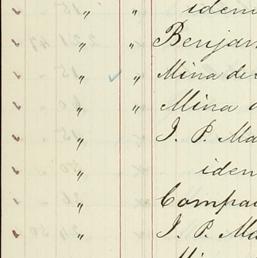 " iden
" " Benjam
" " Mina de
" " Mina d
" J. P. Ma
" iden
" Compa
" J. P. Ma